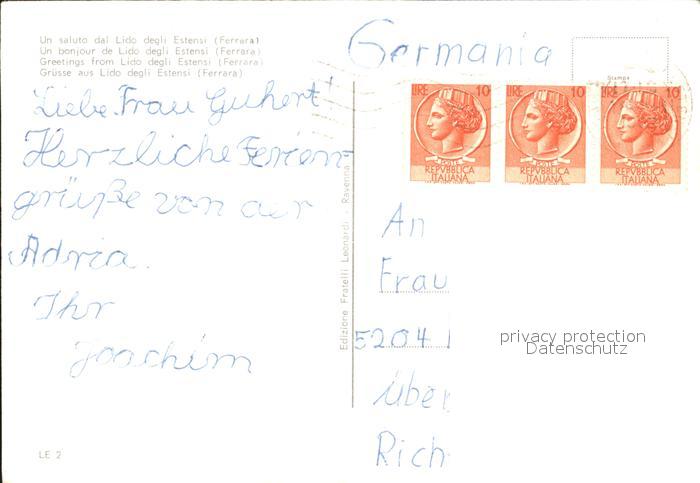 Un saluto dal Lido degli Estensi (Ferrara)
Un bonjour de Lido degli Estensi (Ferrara)
Greetings from Lido degli Estensi (Ferrara)
Grüsse aus Lido degli Estensi (Ferrara)
Liebe Frau Guhert!
Herzliche Ferien-
grüße von der
Adria.
Ihr
Joachim
LE 2
Edizione Fratelli Leonardi - Ravenna
Germania
Stampe
LIRE 10 LIRE 10 LIRE 10
POSTE POSTE POSTE
REPVBBLICA REPVBBLICA REPVBBLICA
ITALIANA ITALIANA ITALIANA
An
Frau
5204
über
Rich
privacy protection
Datenschutz